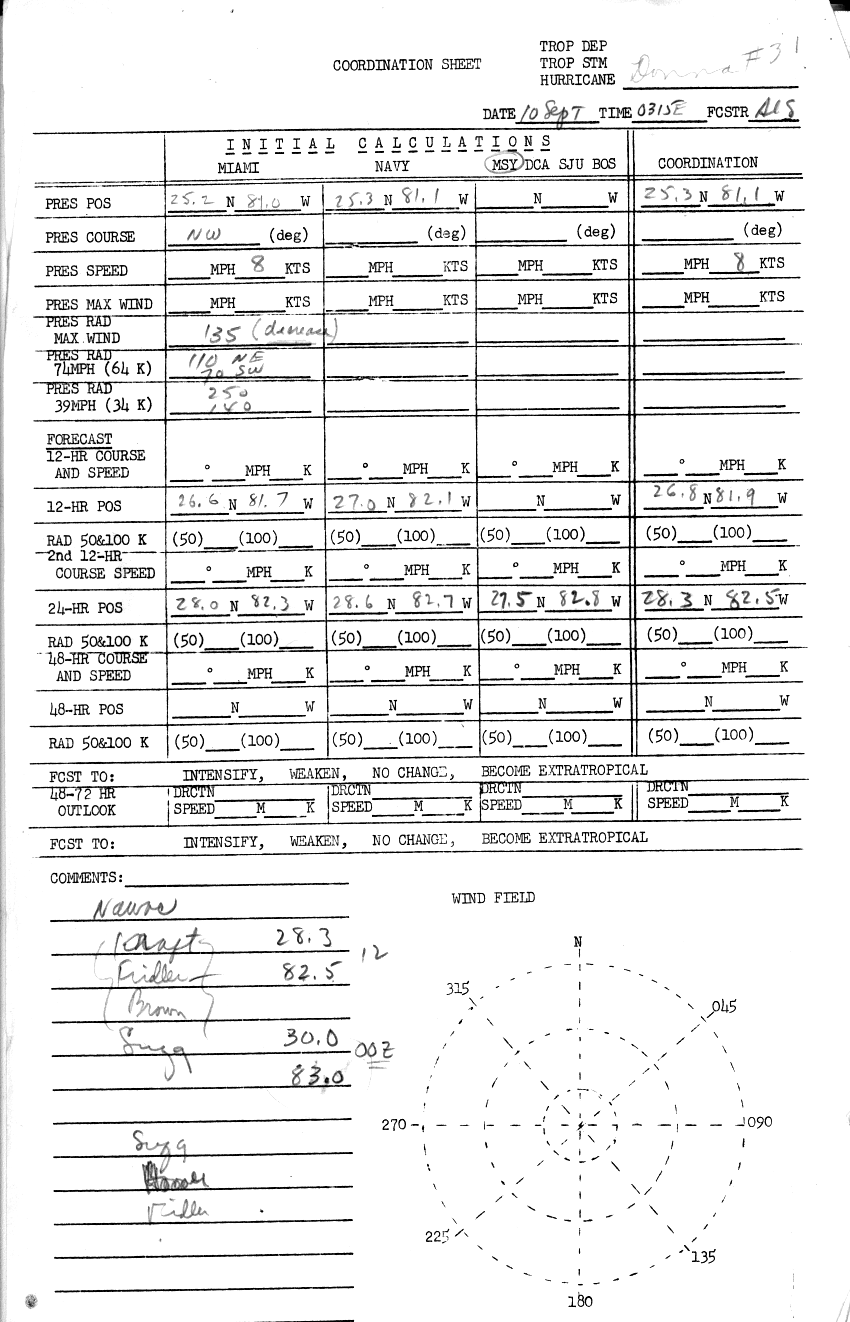 TROP DEP
COORDINATION SHEET TROP STM
HURRICANE Donna #31
DATE 10 Sept TIME 0315E FCSTR
INITIAL CALCULATIONS
MIAMI NAVY MSY DCA SJU BOS COORDINATION
PRES POS 25.2 N 81.0 W 25.3 N 81.1 W N W 25.3 N 81.1 W
PRES COURSE NW (deg) (deg) (deg) (deg)
PRES SPEED MPH 8 KTS MPH KTS MPH KTS MPH 8 KTS
PRES MAX WIND MPH KTS MPH KTS MPH KTS MPH KTS
PRES RAD
MAX WIND 135 (decrease)
PRES RAD 110 NE
74MPH (64 K) 70 SW
PRES RAD 250
39MPH (34 K) 140
FORECAST
12-HR COURSE
AND SPEED ° MPH K ° MPH K ° MPH K ° MPH K
12-HR POS 26.6 N 81.7 W 27.0 N 82.1 W N W 26.8 N 81.9 W
RAD 50&100 K (50) (100) (50) (100) (50) (100) (50) (100)
2nd 12-HR
COURSE SPEED ° MPH K ° MPH K ° MPH K ° MPH K
24-HR POS 28.0 N 82.3 W 28.6 N 82.7 W 27.5 N 82.8 W 28.3 N 82.5 W
RAD 50&100 K (50) (100) (50) (100) (50) (100) (50) (100)
48-HR COURSE
AND SPEED ° MPH K ° MPH K ° MPH K ° MPH K
48-HR POS N W N W N W N W
RAD 50&100 K (50) (100) (50) (100) (50) (100) (50) (100)
FCST TO: INTENSIFY, WEAKEN, NO CHANGE, BECOME EXTRATROPICAL
48-72 HR DRCTN DRCTN DRCTN DRCTN
OUTLOOK SPEED M K SPEED M K SPEED M K SPEED M K
FCST TO: INTENSIFY, WEAKEN, NO CHANGE, BECOME EXTRATROPICAL
COMMENTS:
WIND FIELD
Kraft 28.3
12
Fridler 82.5
Brown
Sugg 30.0
00Z
83.0
Sugg
N
045
090
135
180
225
270
315